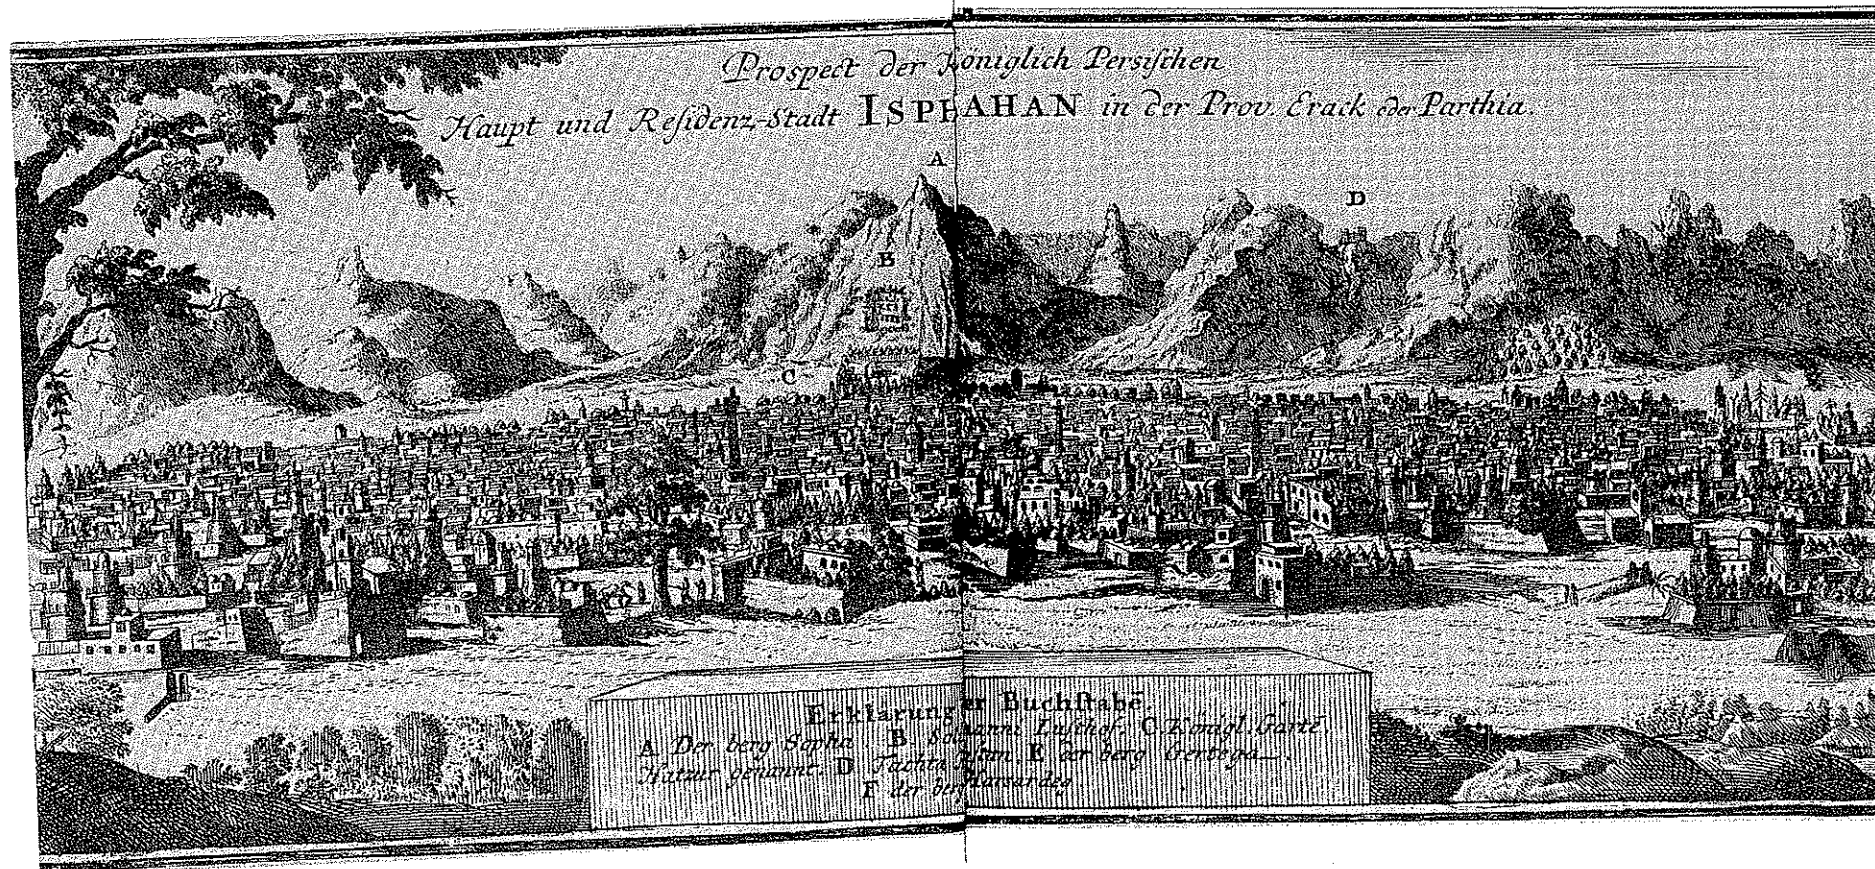 Prospect der Königlich Persischen
Haupt und Residenz-Stadt ISPAHAN in der Prov. Erack oder Parthia.
A
D
B
C
Erklärung der Buchstabē.
A Der berg Sopha B Lusthof. C Königl. Gartē,
Hatzar genannt. D Tachte E der berg
F der berg